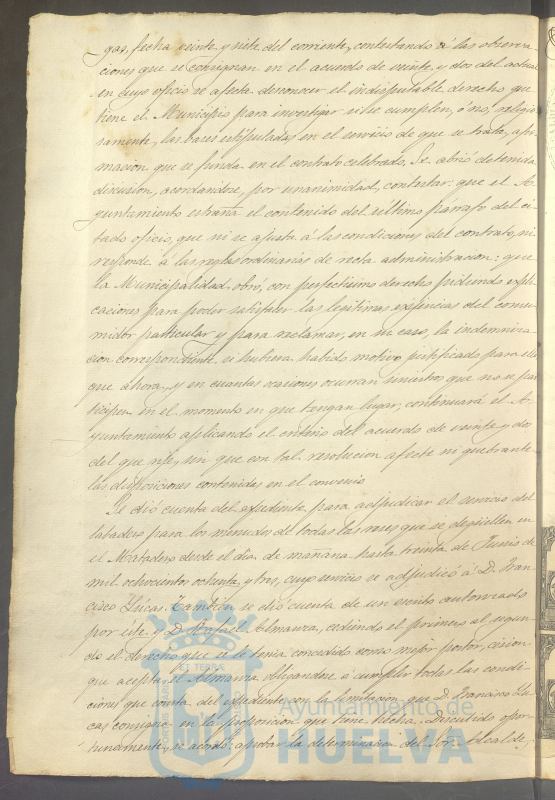 gas, fecha veinte y siete del corriente, contestando á las observa-
ciones que se consignan en el acuerdo de veinte y dos del actual
en cuyo oficio se afecta desconocer el indisputable derecho que
tiene el Municipio para investigar si se cumplen, ó no, religio-
samente, las bases estipuladas en el servicio de que se trata, afir-
macion que se funda en el contrato celebrado. Se abrió detenida
discusion, acordandose, por unanimidad, contestar: que el A-
yuntamiento estraña el contenido del último párrafo del ci-
tado oficio, que ni se ajusta á las condiciones del contrato, ni
responde á las reglas ordinarias de recta administracion: que
la Municipalidad obró, con perfectisimo derecho pidiendo espli-
caciones para poder satisfacer las legítimas exijencias del consu-
midor particular y para reclamar, en su caso, la indemniza-
cion correspondiente si hubiera habido motivo justificado para ello
que ahora, y en cuantas ocasiones ocurran siniestros que no se par-
ticipen en el momento en que tengan lugar, continuará el A-
yuntamiento aplicando el criterio del acuerdo de veinte y dos
del que rije, sin que con tal resolucion afecte ni quebrante
las disposiciones contenidas en el convenio
Se dió cuenta del expediente para adjudicar el servicio del
labadero para los menudos de todas las reses que se degüellen en
el Matadero desde el dia de mañana hasta treinta de Junio de
mil ochocientos ochenta y tres, cuyo servicio se adjudicó á D. Fran-
cisco Lúcas. Tambien se dió cuenta de un escrito autorizado
por éste y D. Rafael Almansa, cediendo el primero al segun-
do el derecho que se le tenia concedido como mejor postor, cesion
que acepta el Almansa obligandose á cumplir todas las condi-
ciones que consta del expediente con la limitacion que D. Francisco Lu-
cas consigna en la proposicion que tiene hecha. Discutido opor-
tunamente, se acordó: aprobar la determinacion del Sor. Alcalde,
Ayuntamiento de
HUELVA